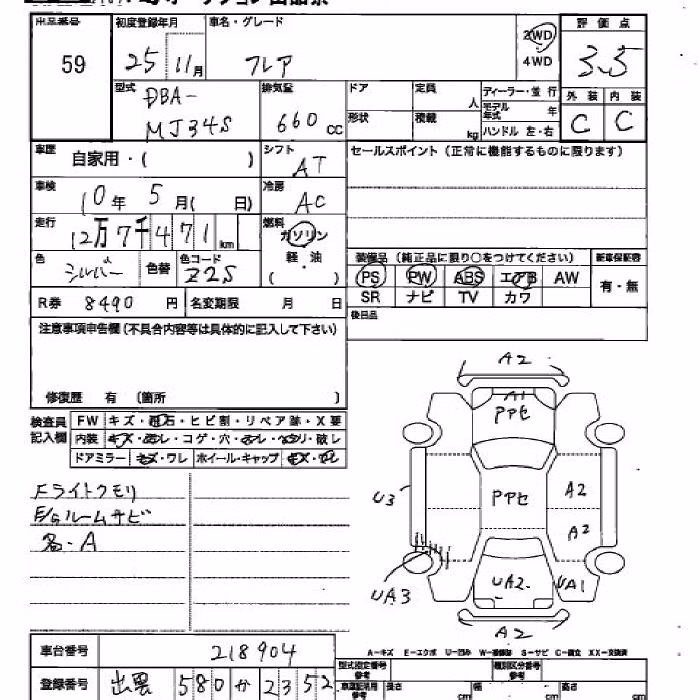 出品番号
59
初度登録年月
25 11月
車名・グレード
フレア
2WD
4WD
評価点
3.5
型式
DBA-
MJ34S
排気量
660 cc
ドア
形状
定員
人
積載
kg
ディーラー・並行
モデル年式 年
ハンドル 左・右
外装
内装
C C
車歴
自家用・( )
シフト
AT
セールスポイント (正常に機能するものに限ります)
車検
10年 5月( 日)
冷房
AC
走行
12万7千471 km
燃料
ガソリン
軽・油
( )
色
シルバー
色替
色コード
Z2S
装備品 (純正品に限り○をつけてください)
新車保証書
PS PW ABS エアB AW
有・無
SR ナビ TV カワ
R券 8490 円
名変期限 月 日
後日品
注意事項申告欄 (不具合内容等は具体的に記入して下さい)
修復歴 有 (箇所 )
検査員
記入欄
FW キズ・飛石・ヒビ割・リペア跡・X要
内装 キズ・ヨゴレ・コゲ・穴・ヘリ・破レ
ドアミラー キズ・ワレ ホイール・キャップ キズ
Fライトクモリ
E/Gルームサビ
多-A
A2
A1
Pアセ
U3
Pアセ
A2
A2
UA3
UA2
UA1
A2
車台番号
218904
A-キズ E-エクボ U-凹み W-補修跡 S-サビ C-腐食 XX-交換済
登録番号
出雲 580 か 2352
型式指定番号
参考
種類区分番号
参考
車庫証明用
参考
長さ cm
幅 cm
高さ cm